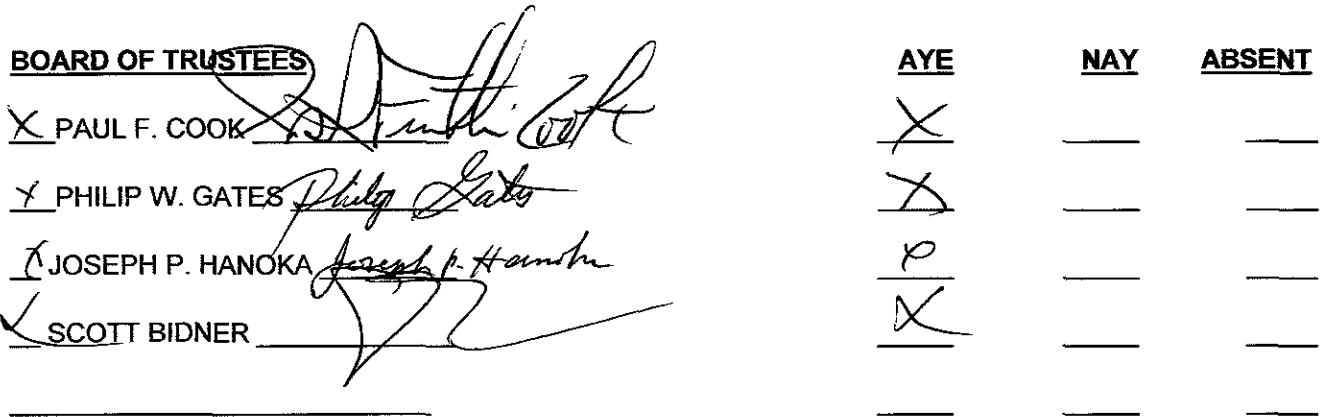 BOARD OF TRUSTEES AYE NAY ABSENT
X PAUL F. COOK Cook X
X PHILIP W. GATES Philip Gates X
X JOSEPH P. HANOKA Joseph P. Hanoka X
X SCOTT BIDNER X